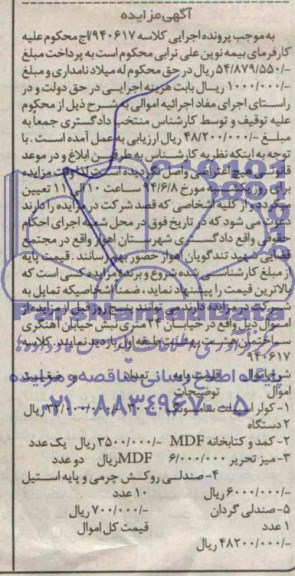 آگهی مزایده
به موجب پرونده اجرایی کلاسه ۹۴۰۶۱۷/اج محکوم علیه
کارفرمای بیمه نوین علی ترابی محکوم است به پرداخت مبلغ
۵۴/۸۷۹/۵۵۰/- ریال در حق محکوم له میلاد نامداری و مبلغ
۱۰۰۰/۰۰۰/- ریال بابت هزینه اجرایی در حق دولت و در
راستای اجرای مفاد اجرائیه اموالی به شرح ذیل از محکوم
علیه توقیف و توسط کارشناس منتخب دادگستری جمعاً به
مبلغ ۴۸/۲۰۰/۰۰۰/- ریال ارزیابی به عمل آمده است. با
توجه به اینکه نظریه کارشناس به طرفین ابلاغ و در موعد
قانونی هیچ اعتراضی واصل نگردیده است لذا وقت مزایده
برای روز یکشنبه مورخ ۹۴/۶/۸ ساعت ۱۰ الی ۱۱ تعیین
میگردد از کلیه اشخاصی که قصد شرکت در مزایده را دارند
می شود که در تاریخ فوق در محل شعبه اجرای احکام
حقوقی واقع دادگستری شهرستان اهواز واقع در مجتمع
قضایی شهید تندگویان اهواز حضور بهم رسانند. قیمت پایه
از مبلغ کارشناسی شده شروع و برنده مزایده کسی است که
بالاترین قیمت را پیشنهاد نماید، ضمناً اشخاصیکه تمایل به
شرکت در مزایده دارند می توانند پنج روز قبل از مزایده از
اموال ذیل واقع در خیابان ۲۴ متری نبش خیابان آهنگری
ساختمان هشت بهشت طبقه اول بازدید نمایند. کلاسه
۹۴۰۶۱۷
اموال توضیحات
۱- کولر اسپلیت سامسونگ ریال
۲ دستگاه
۲- کمد و کتابخانه MDF ۳۵۰۰/۰۰۰/- ریال یک عدد
۳- میز تحریر MDF ۶/۰۰۰/۰۰۰ ریال دو عدد
۴- صندلی روکش چرمی و پایه استیل
۶۰۰۰/۰۰۰/- ریال ۱۰ عدد
۵- صندلی گردان ۷۰۰/۰۰۰/- ریال
۱ عدد قیمت کل اموال
۴۸۲۰۰/۰۰۰/- ریال
ParsNamadData
پایگاه اطلاع رسانی مناقصه و مزایده
۰۲۱-۸۸۳۴۹۶۷۰-۵